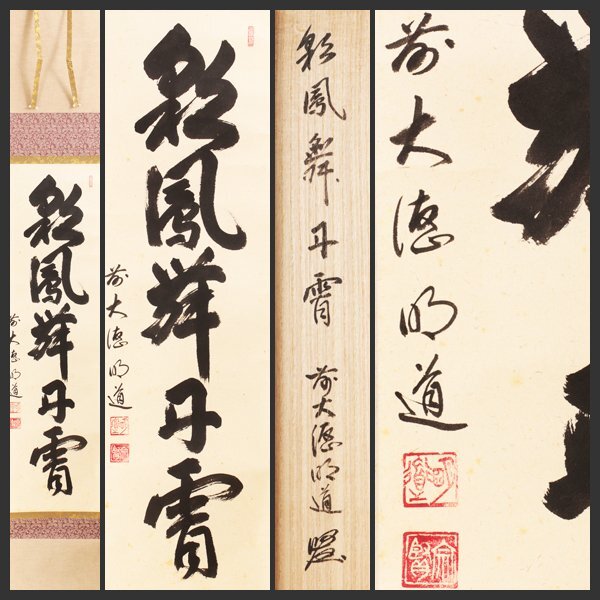 彩鳳舞丹霄
前大徳明道
彩鳳舞丹霄
前大徳明道
彩鳳舞丹霄
前大徳明道
前大徳明道